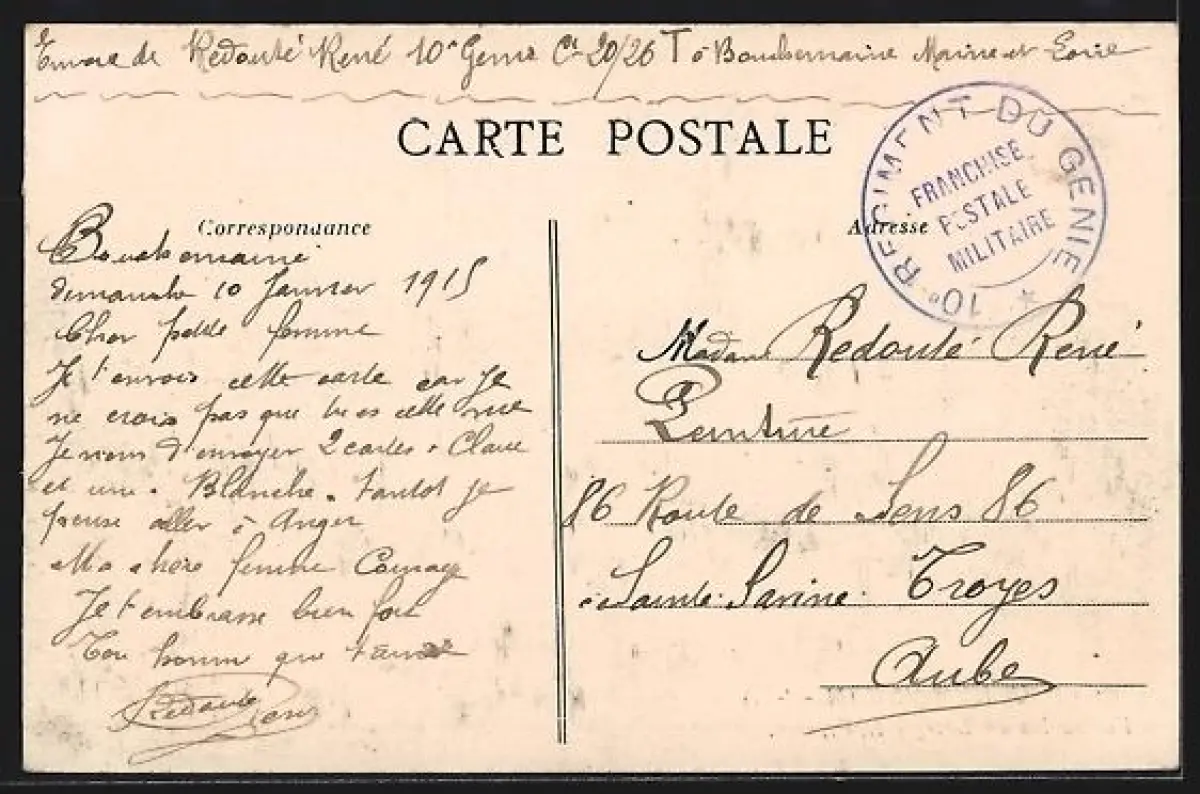 Envoie de Redouté René 10e Génie Cie 20/26 T à Bouchemaine Maine et Loire
CARTE POSTALE
10e REGIMENT DU GÉNIE
FRANCHISE
POSTALE
MILITAIRE
Correspondance
Adresse
Bouchemaine
dimanche 10 Janvier 1915
Cher petite femme
Je t'envois cette carte car je
ne crois pas que tu es cette vue
Je viens d'envoyer 2 cartes a Claire
et une a Blanche. tantot je
pense aller à Anger
Ma chère femme Courage
Je t'embrasse bien fort
Ton homme que t'aime
Redouté René
Madame Redouté René
Peinture
86 Route de Sens 86
Sainte Savine. Troyes
Aube